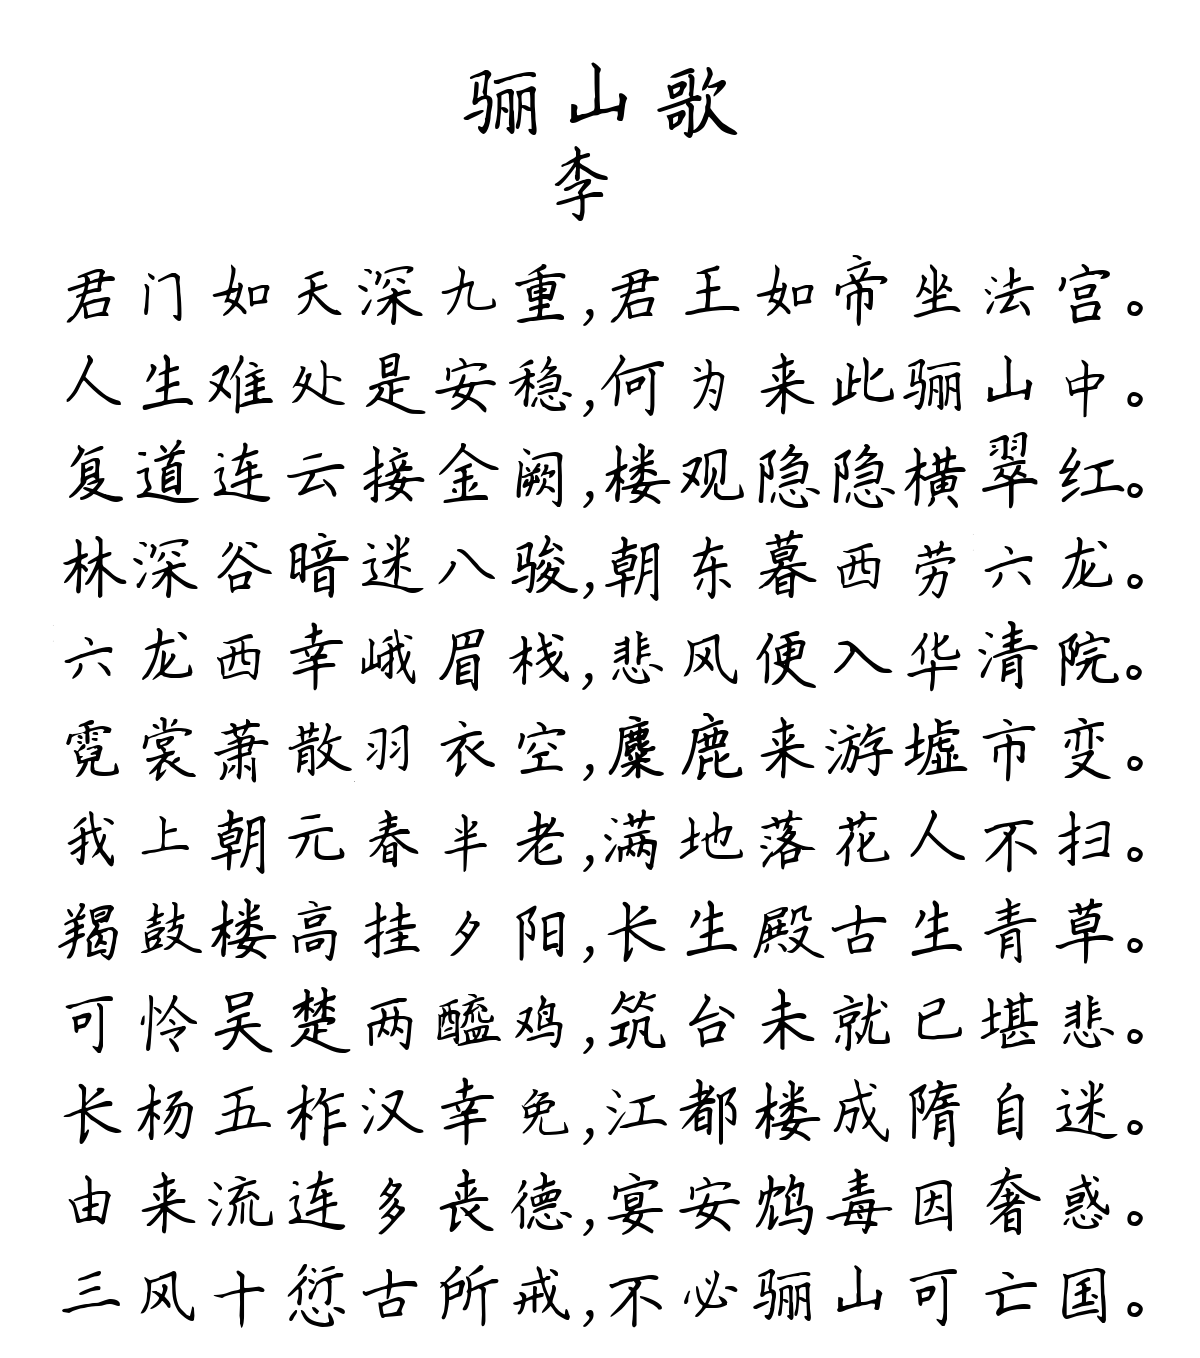 骊山歌
李
君门如天深九重,君王如帝坐法宫。
人生难处是安稳,何为来此骊山中。
复道连云接金阙,楼观隐隐横翠红。
林深谷暗迷八骏,朝东暮西劳六龙。
六龙西幸峨眉栈,悲风便入华清院。
霓裳萧散羽衣空,麋鹿来游墟市变。
我上朝元春半老,满地落花人不扫。
羯鼓楼高挂夕阳,长生殿古生青草。
可怜吴楚两醯鸡,筑台未就已堪悲。
长杨五柞汉幸免,江都楼成隋自迷。
由来流连多丧德,宴安鸩毒因奢惑。
三风十愆古所戒,不必骊山可亡国。